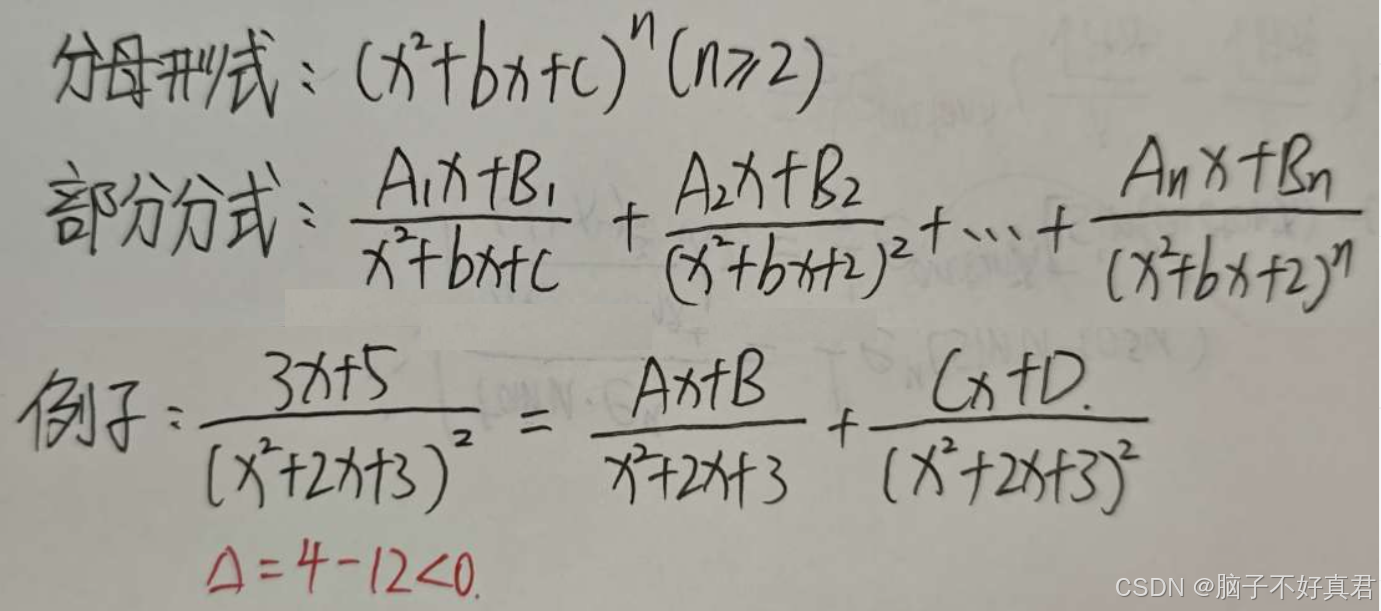 分母形式：(x²+bx+c)ⁿ(n≥2)
部分分式：\frac{A₁x+B₁}{x²+bx+c} + \frac{A₂x+B₂}{(x²+bx+2)²} + … + \frac{Aₙx+Bₙ}{(x²+bx+2)ⁿ}
例子：\frac{3x+5}{(x²+2x+3)²} = \frac{Ax+B}{x²+2x+3} + \frac{Cx+D.}{(x²+2x+3)²}
Δ=4-12<0.
CSDN @脑子不好真君